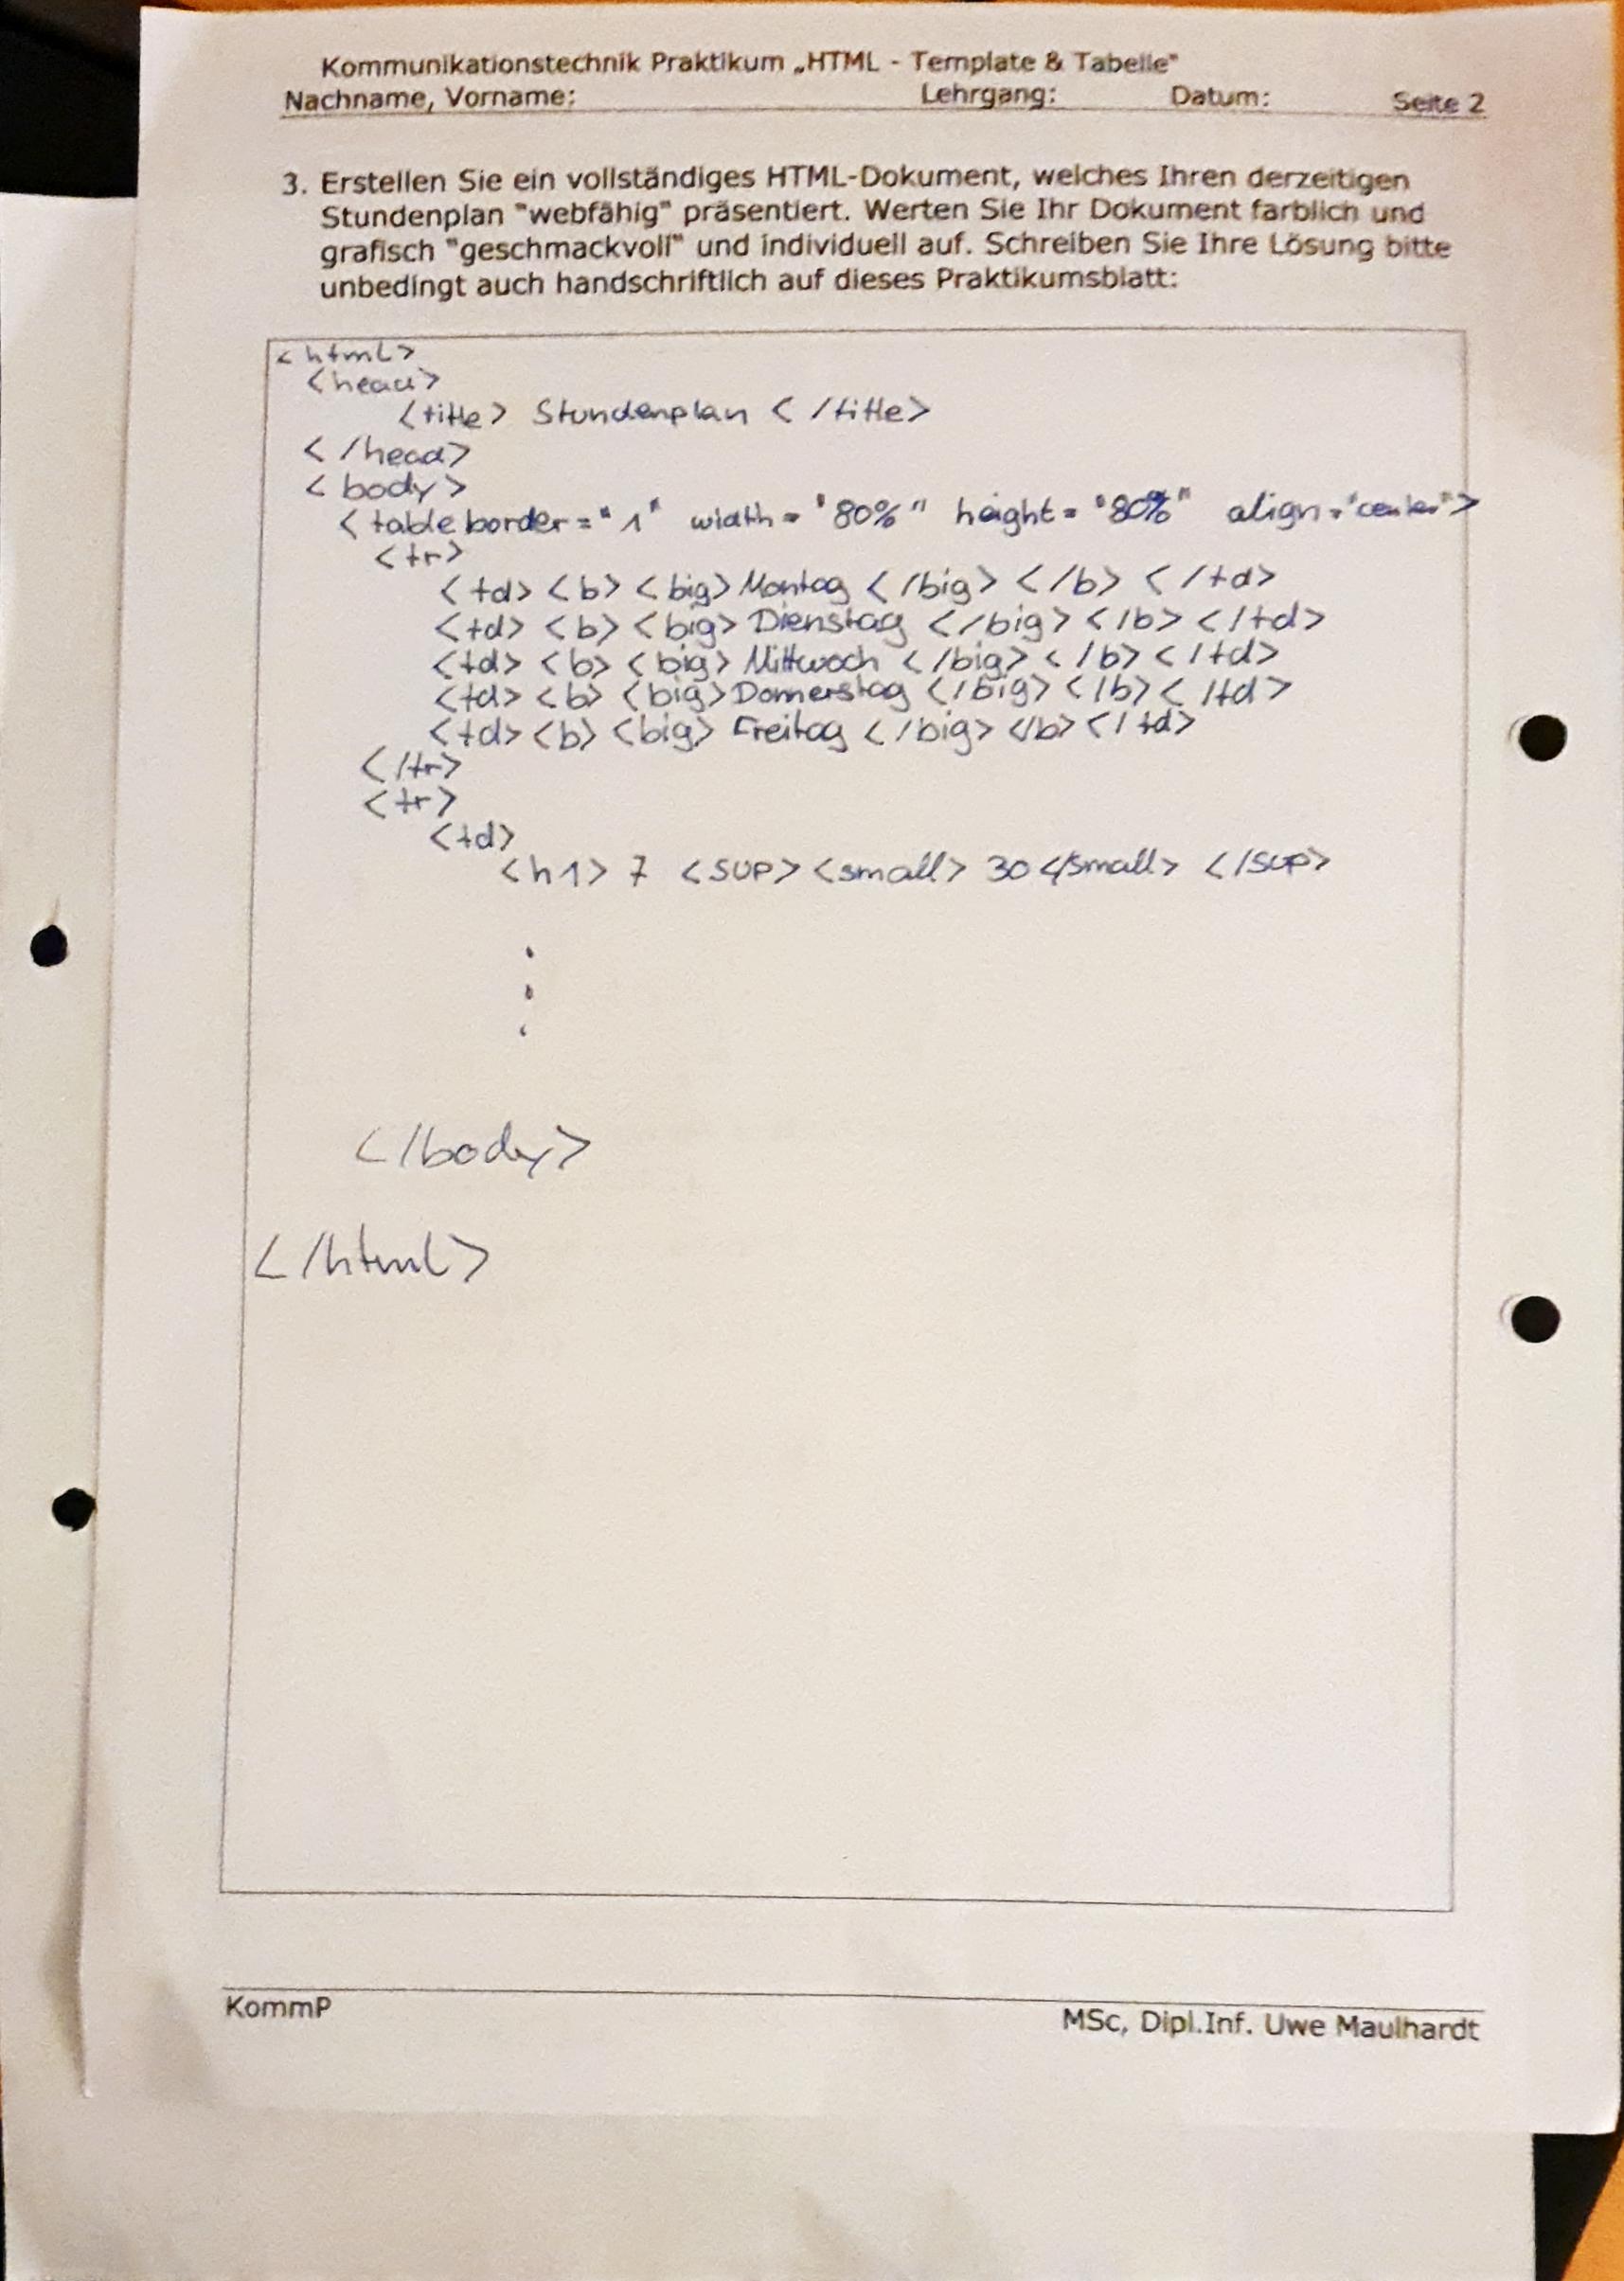 Kommunikationstechnik Praktikum „HTML - Template & Tabelle"
Nachname, Vorname: Lehrgang: Datum: Seite 2
3. Erstellen Sie ein vollständiges HTML-Dokument, welches Ihren derzeitigen
Stundenplan "webfähig" präsentiert. Werten Sie Ihr Dokument farblich und
grafisch "geschmackvoll" und individuell auf. Schreiben Sie Ihre Lösung bitte
unbedingt auch handschriftlich auf dieses Praktikumsblatt:
<html>
<head>
<title> Stundenplan </title>
</head>
<body>
<table border="1" width="80%" height="80%" align="center">
<tr>
<td> <b> <big> Montag </big> </b> </td>
<td> <b> <big> Dienstag </big> </b> </td>
<td> <b> <big> Mittwoch </big> </b> </td>
<td> <b> <big> Donnerstag </big> </b> </td>
<td> <b> <big> Freitag </big> </b> </td>
</tr>
<tr>
<td>
<h1> 7 <sup> <small> 30 </small> </sup>
.
.
.
</body>
</html>
KommP MSc, Dipl.Inf. Uwe Maulhardt